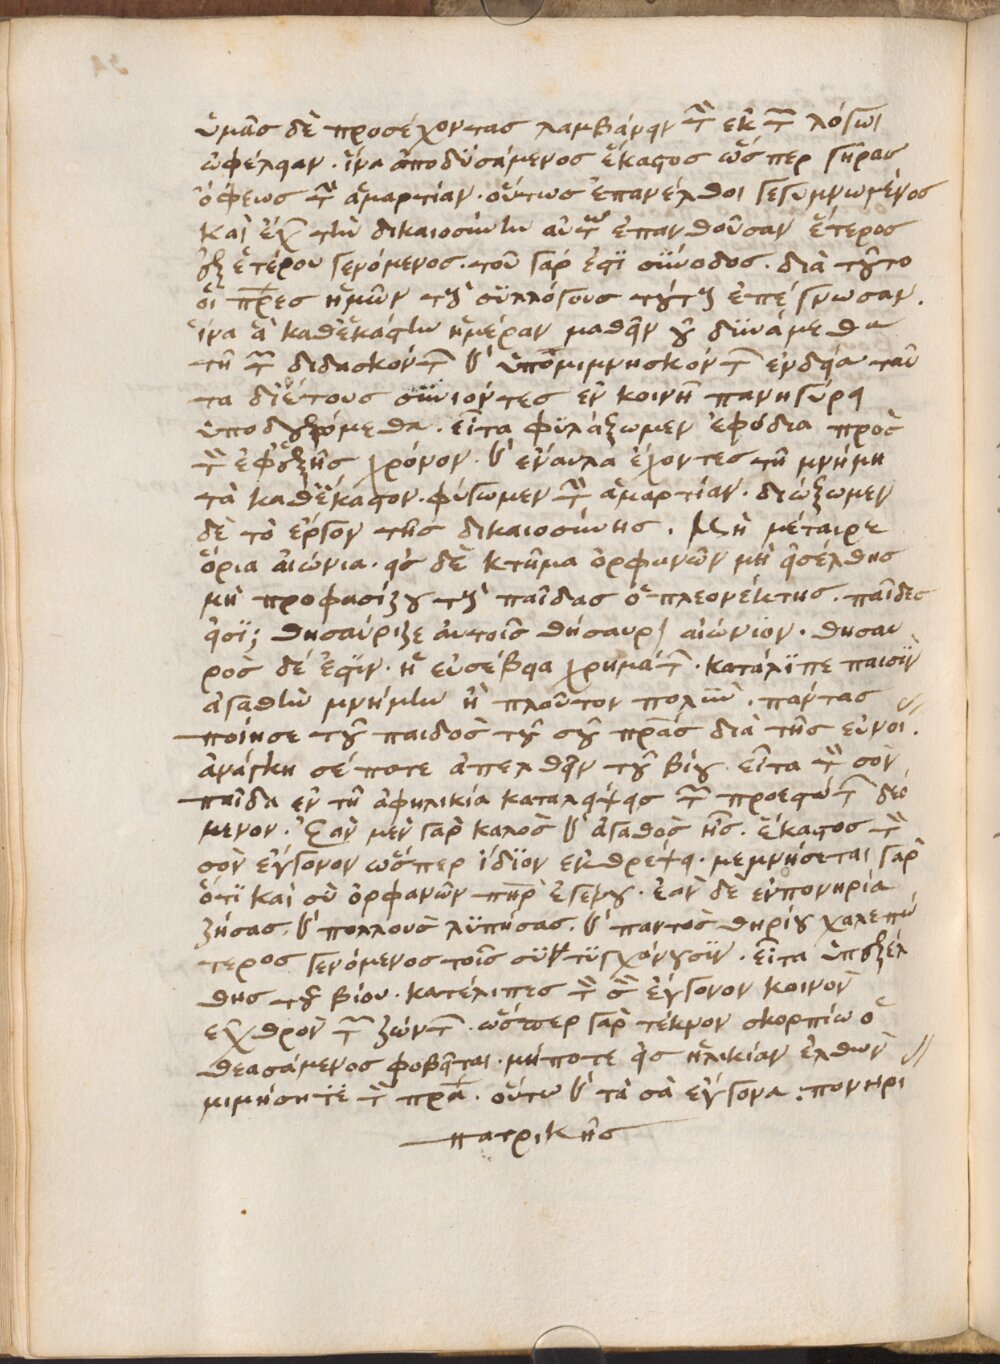 ὑμᾶς δὲ προσέχοντας λαμβάνειν τὴν ἐκ τῶν λόγων
ὠφέλειαν. ἵνα ἀποδυσάμενος ἕκαστος ὥσπερ γῆρας
ὄφεως τὴν ἁμαρτίαν. οὕτως ἐπανέλθοι γεγυμνωμένος
καὶ ἔχων τὴν δικαιοσύνην αὐτῷ ἐπανθοῦσαν ἕτερος
ἐξ ἑτέρου γενόμενος. τοῦ γάρ ἐστϊ σύνοδος. διὰ τοῦτο
οἱ πρες ἡμῶν τοὺς συλλόγους τούτους ἐπέγνωσαν.
ἵνα ἃ καθεκάστην ἡμέραν μαθεῖν οὐ δυνάμεθα
τῇ τῶν διδασκόντων καὶ ὑπομιμνησκόντων ἐνδείᾳ ταῦ
τα δι' ἔτους συνιόντες ἐν κοινῇ πανηγύρει
ὑποδεξόμεθα. εἶτα φυλάξωμεν ἐφόδια πρὸς
τὸν ἐφεξῆς χρόνον. καὶ ἔναυλα ἔχοντες τῇ μνήμῃ
τὰ καθέκαστον. φύγωμεν τὴν ἁμαρτίαν. διώξωμεν
δὲ τὸ ἔργον τῆς δικαιοσύνης. Μὴ μέταιρε
ὅρια αἰώνια. εἰς δὲ κτῆμα ὀρφανῶν μὴ εἰσέλθῃς
μὴ προφασίζου τοὺς παῖδας ὁ πλεονέκτης. παῖδες
εἰσϊ; θησαύριζε αὐτοῖς θησαυροὺς αἰώνιον. θησαυ
ρὸς δέ ἐστϊν. ἡ εὐσέβεια χρημάτων. κατάλϊπε παισϊν
ἀγαθὴν μνήμην ἢ πλοῦτον πολύν. πάντας
ποίησε τοῦ παιδὸς τοῦ σοῦ πρας διὰ τῆς εὐνοί.
ἀνάγκη σέ ποτε ἀπελθεῖν τοῦ βίου. εἶτα τὸν σὸν
παῖδα ἐν τῇ ἀφηλικίᾳ καταλείψεις τῶν προεστώτων δεό
μενον. Ἐὰν μὲν γὰρ καλὸς καὶ ἀγαθὸς ᾖς. ἕκαστος τὸν
σὸν ἔγγονον ὥσπερ ἴδϊον ἐκθρέψει. μεμνήσεται γὰρ
ὅτι καὶ σὺ ὀρφανῶν πηρ ἐγένου. ἐὰν δὲ ἐν πονηρίᾳ
ζήσας. καὶ πολλοὺς λυπήσας. καὶ παντὸς θηρίου χαλεπώ
τερος γενόμενος τοῖς συντυγχάνουσϊν. εἶτα ὑπεξέλ
θῃς τοῦ βίου. κατέλιπες τὸν σὸν ἔγγονον κοινὸν
ἐχθρὸν τῶν ζώντων. ὥσπερ γὰρ τέκνον σκορπίου ὁ
θεασάμενος φοβεῖται. μήποτε εἰς ἡλικίαν ἐλθὼν
μιμήσηται τὸν πρα. οὕτω καὶ τὰ σὰ ἔγγονα. πονηρι
πατρικῆς